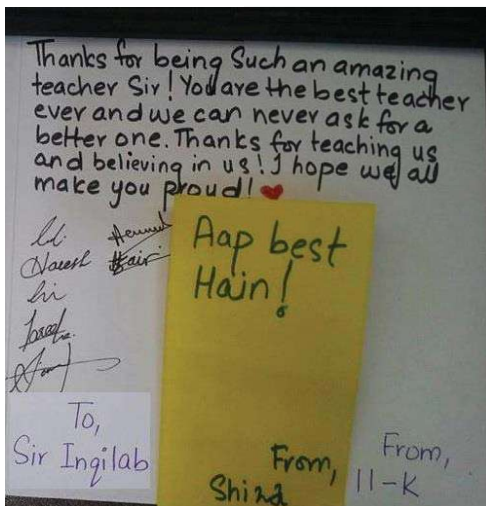 Thanks for being Such an amazing
teacher Sir! You are the best teacher
ever and we can never ask for a
better one. Thanks for teaching us
and believing in us! I hope we all
make you proud!
Aap best
Hain!
From,
Shiza
Naresh
To,
Sir Inqilab
From,
11-K